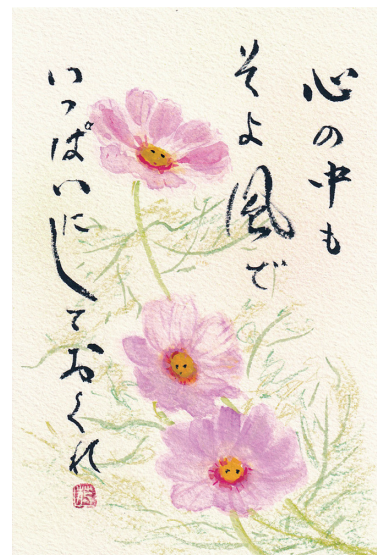 心の中も
そよ風で
いっぱいにしておくれ